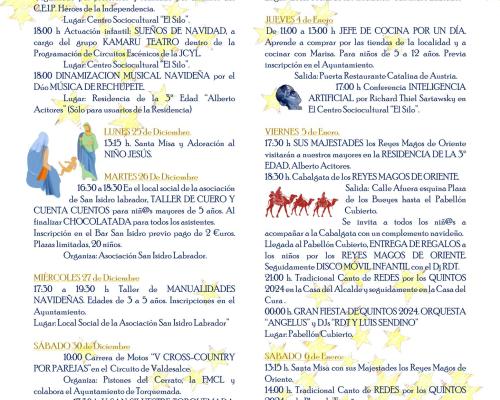 C.E.I.P. Héroes de la Independencia.
Lugar: Centro Sociocultural "El Silo".
18:00 h Actuación infantil: SUEÑOS DE NAVIDAD, a
cargo del grupo KAMARU TEATRO dentro de la
Programación de Circuitos Escénicos de la JCYL.
Lugar: Centro Sociocultural "El Silo".
18:00 DINAMIZACION MUSICAL NAVIDEÑA por el
Dúo MÚSICA DE RECHUPETE.
Lugar: Residencia de la 3ª Edad "Alberto
Acitores" (Sólo para usuarios de la Residencia)
LUNES 25 de Diciembre.
13:15 h. Santa Misa y Adoración al
NIÑO JESÚS.
MARTES 26 De Diciembre
16:30 a 18:30 En el local social de la asociación
de San Isidro labrador, TALLER DE CUERO Y
CUENTA CUENTOS para niñ@s mayores de 5 años. Al
finalizar CHOCOLATADA para todos los asistentes.
Inscripción en el Bar San Isidro previo pago de 2 €uros.
Plazas limitadas, 20 niños.
Organiza: Asociación San Isidro Labrador.
MIÉRCOLES 27 de Diciembre
17:30 a 19:30 h Taller de MANUALIDADES
NAVIDEÑAS. Edades de 3 a 5 años. Inscripciones en el
Ayuntamiento.
Lugar: Local Social de la Asociación San Isidro Labrador"
SÁBADO 30 de Diciembre
10:00 Carrera de Motos "V CROSS-COUNTRY
POR PAREJAS" en el Circuito de Valdesalce.
Organiza: Pistones del Cerrato, la FMCL y
colabora el Ayuntamiento de Torquemada.
JUEVES 4 de Enero
De 11:00 a 13:00 h JEFE DE COCINA POR UN DÍA.
Aprende a comprar por las tiendas de la localidad y a
cocinar con Marisa. Para niños de 5 a 12 años. Previa
inscripción en el Ayuntamiento.
Salida: Puerta Restaurante Catalina de Austria.
17:00 h Conferencia INTELIGENCIA
ARTIFICIAL por Richard Thiel Sartawsky en
El Centro Sociocultural "El Silo".
VIERNES 5 de Enero.
17:30 h SUS MAJESTADES los Reyes Magos de Oriente
visitarán a nuestros mayores en la RESIDENCIA DE LA 3ª
EDAD, Alberto Acitores.
18:30 h. Cabalgata de los REYES MAGOS DE ORIENTE.
Salida: Calle Afuera esquina Plaza
de los Bueyes hasta el Pabellón
Cubierto.
Se invita a todos los niñ@s a
acompañar a la Cabalgata con un complemento navideño.
Llegada al Pabellón Cubierto, ENTREGA DE REGALOS a
los niños por los REYES MAGOS DE ORIENTE.
Seguidamente DISCO MÓVIL INFANTIL con el Dj RDT.
21:00 h. Tradicional Canto de REDES por los QUINTOS
2024 en la Casa del Alcalde y seguidamente en la Casa del
Cura.
00:00 h. GRAN FIESTA DE QUINTOS 2024. ORQUESTA
"ANGELUS" y DJs "RDT Y LUIS SENDINO"
Lugar: Pabellón Cubierto,
SÁBADO 6 de Enero:
13:15 h. Santa Misa con sus Majestades los Reyes Magos de
Oriente,
14:00 h. Tradicional Canto de REDES por los QUINTOS